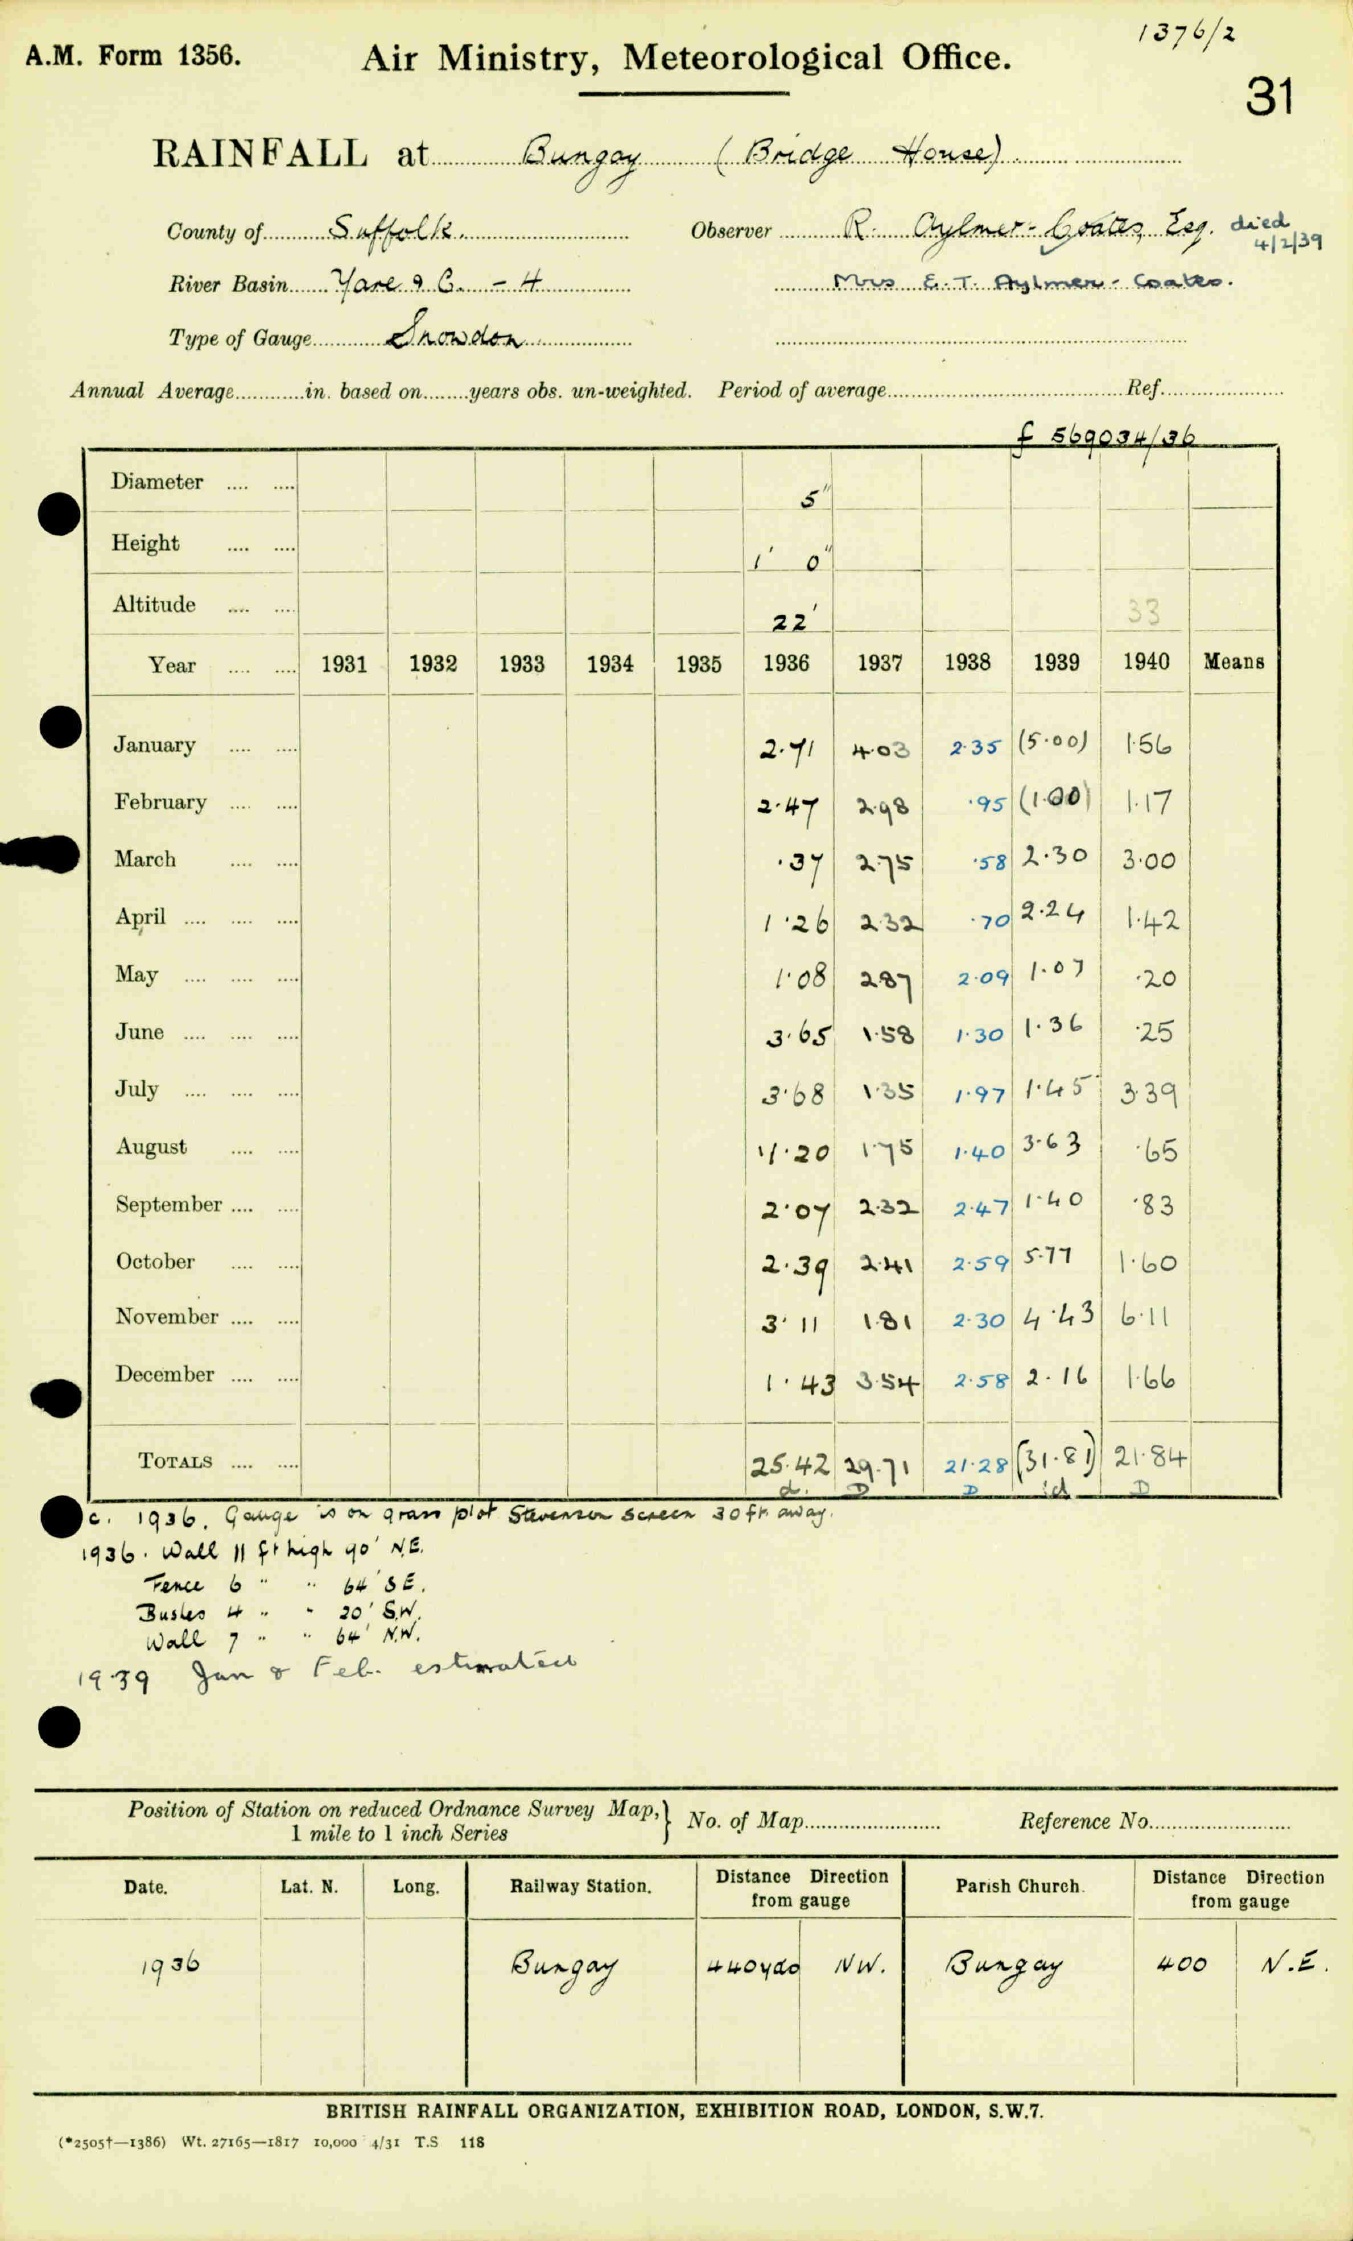 1376/2
A.M. Form 1356. Air Ministry, Meteorological Office.
31
RAINFALL at Bungay (Bridge House)
County of Suffolk. Observer R. Aylmer-Coates, Esq. died 4/2/39
River Basin Yare &C. - H Mrs E. T. Aylmer-Coates.
Type of Gauge Snowdon
Annual Average in. based on years obs. un-weighted. Period of average Ref.
f 569034/36
Diameter .... .... 5"
Height .... .... 1' 0"
Altitude .... .... 22' 33
Year .... .... 1931 1932 1933 1934 1935 1936 1937 1938 1939 1940 Means
January .... .... 2.71 4.03 2.35 (5.00) 1.56
February .... .... 2.47 2.98 .95 (1.00) 1.17
March .... .... .37 2.75 .58 2.30 3.00
April .... .... .... 1.26 2.32 .70 2.24 1.42
May .... .... .... 1.08 2.87 2.09 1.07 .20
June .... .... .... 3.65 1.58 1.30 1.36 .25
July .... .... .... 3.68 1.35 1.97 1.45 3.39
August .... .... 1.20 1.75 1.40 3.63 .65
September .... .... 2.07 2.32 2.47 1.40 .83
October .... .... 2.39 2.41 2.59 5.77 1.60
November .... .... 3.11 1.81 2.30 4.43 6.11
December .... .... 1.43 3.54 2.58 2.16 1.66
TOTALS .... .... 25.42 29.71 21.28 (31.81) 21.84
d. D D id D
c. 1936. Gauge is on grass plot Stevenson Screen 30 ft. away.
1936. Wall 11 ft high 90' N.E.
Fence 6 " " 64' S.E.
Bushes 4 " " 20' S.W.
Wall 7 " " 64' N.W.
1939 Jan & Feb. estimated
Position of Station on reduced Ordnance Survey Map,} No. of Map Reference No.
1 mile to 1 inch Series
Date. Lat. N. Long. Railway Station. Distance Direction from gauge Parish Church. Distance Direction from gauge
1936 Bungay 440yds NW. Bungay 400 N.E.
BRITISH RAINFALL ORGANIZATION, EXHIBITION ROAD, LONDON, S.W.7.
(*2505†—1386) Wt. 27165—1817 10,000 4/31 T.S 118